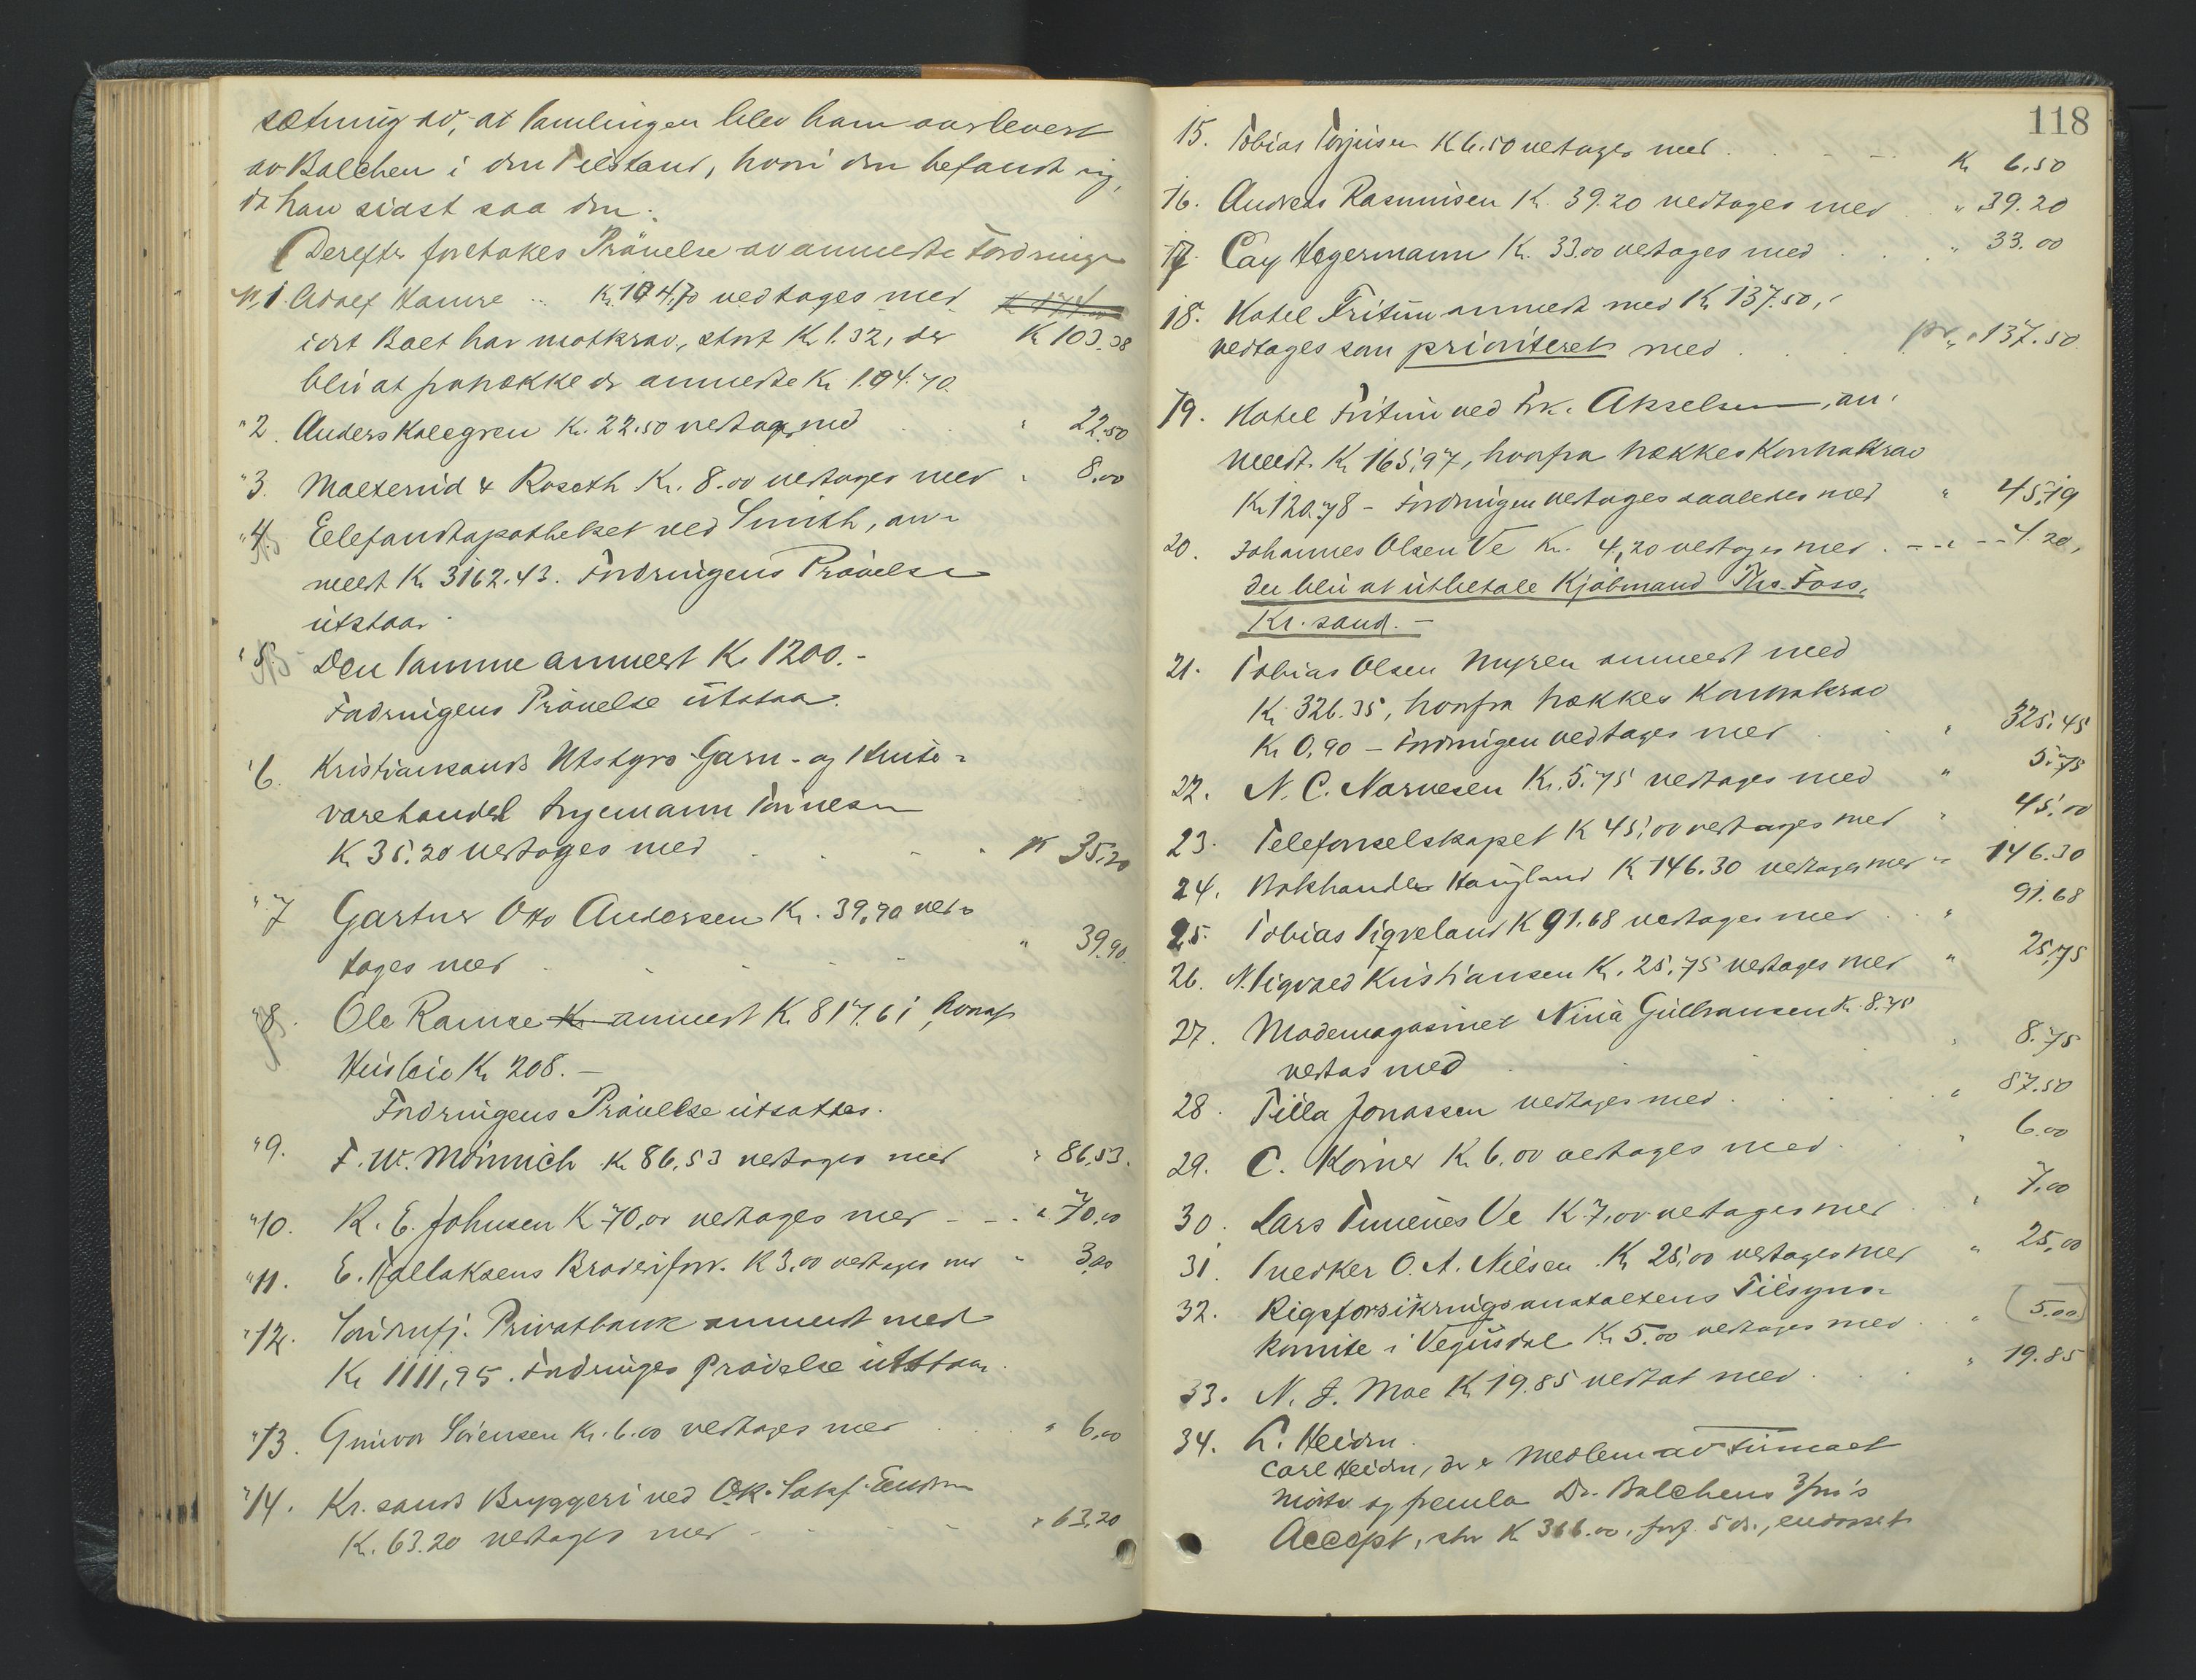 sætning av, at Samlingen blev ham overlevert
av Balchen i den Tilstand, hvori den befandt sig,
da han sidst saa den.
Derefter foretakes Prövelse av anmeldte Fordringer
N. 1. Adolf Hamre .. Kr. 104,70 vedtages med
idet Boet har motkrav, stort Kr 1.32, der Kr 103.38
blir at fratrække de anmeldte Kr 104.70.
" 2. Anders Kallgren Kr. 22.50 vedtages med " 22.50
" 3. & Roseth Kr. 8.00 vedtages med " 8.00
" 4. Elefantapotheket ved Smith, an-
meldt Kr 3162.43. Fordringens Prövelse
utstaar.
" 5. Den samme anmeldt Kr 1200.-
Fordringens Prövelse utstaar.
" 6. Kristiansands Utstyrs- Garn- og Hvite-
varehandel Ingemann Tönnesen
Kr 35.20 vedtages med Kr 35,20
" 7 Gartner Otto Andersen Kr. 39,90 ved-
tages med " 39.90.
" 8. Ole Ramse anmeldt Kr 817.61, hvoraf
Husleie Kr 208. -
Fordringens Prövelse utsattes.
" 9. F. W. Mönnich Kr 86,53 vedtages med " 86,53.
" 10. K. E. Johnsen Kr 70,00 vedtages med " 70,00
" 11. E. Tallaksens Broderiforr. Kr 3,00 vedtages med " 3,00
" 12. Söndenfj. Privatbank anmeldt med
Kr 1111,95. Fordringens Prövelse utstaar.
" 13. Gunvor Sörensen Kr. 6.00 vedtages med " 6,00
" 14. Kr.sands Bryggeri ved
Kr. 63.20 vedtages med " 63,20
118
15. Tobias Torjusen Kr 6.50 vedtages med Kr 6,50
16. Andreas Rasmusen Kr. 39.20 vedtages med " 39.20
17. Cay Hegermann Kr. 33.00 vedtages med " 33.00
18. Hotel Fritun anmeldt med Kr 137.50,
vedtages som prioriteret med pr. " 137.50
19. Hotel Fritun ved Frk. Akselsen, an-
meldt Kr 165,97, hvorfra trækkes Kontrakrav
Kr 120.78 - Fordringen vedtages saaledes med " 45,19
20. Johannes Olsen Ve Kr. 4,20 vedtages med 4.20,
der blir at utbetale Kjöbmand Ths. Foss,
Kr.sand. -
21. Tobias Olsen Myren anmeldt med
Kr 326.35, hvorfra trækkes Kontrakrav
Kr 0,90 - Fordringen vedtages med " 325.45
22. N. C. Narvesen Kr. 5.75 vedtages med " 5.75
23. Telefonselskapet Kr 45,00 vedtages med " 45,00
24. Bokhandler Haugland Kr 146.30 vedtages med " 146.30
25. Tobias Tigveland Kr 91.68 vedtages med " 91.68
26. N. Sigvald Kristiansen Kr. 25,75 vedtages med " 25,75
27. Modemagasinet Nina Gulbransen Kr. 8.75
vedtas med " 8.75
28. Tilla Jonassen vedtages med " 87.50
29. C. Körner Kr 6.00 vedtages med " 6.00
30. Lars Ve Kr 7,00 vedtages med " 7,00
31. Snedker O. A. Nilsen Kr 25,00 vedtages med " 25,00
32. Rigsforsikringsanstaltens Tilsyns-
komite i Vegusdal Kr 5.00 vedtages med " (5.00)
33. N. J. Moe Kr 19.85 vedtat med " 19.85
34. C. Heiden.
Carl Heiden, der er Medlem av Firmaet
mötte og fremla Dr. Balchens 3/m's
Accept, stor Kr 366.00, forf. 5 ds., endosseret